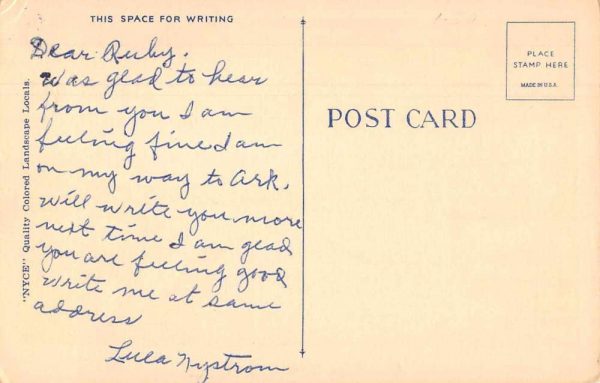 THIS SPACE FOR WRITING
Dear Ruby.
Was glad to hear
from you I am
feeling fine I am
on my way to Ark.
will write you more
next time I am glad
you are feeling good
write me at same
address
Lula Nystrom
"NYCE" Quality Colored Landscape Locals.
POST CARD
PLACE
STAMP HERE
MADE IN U.S.A.